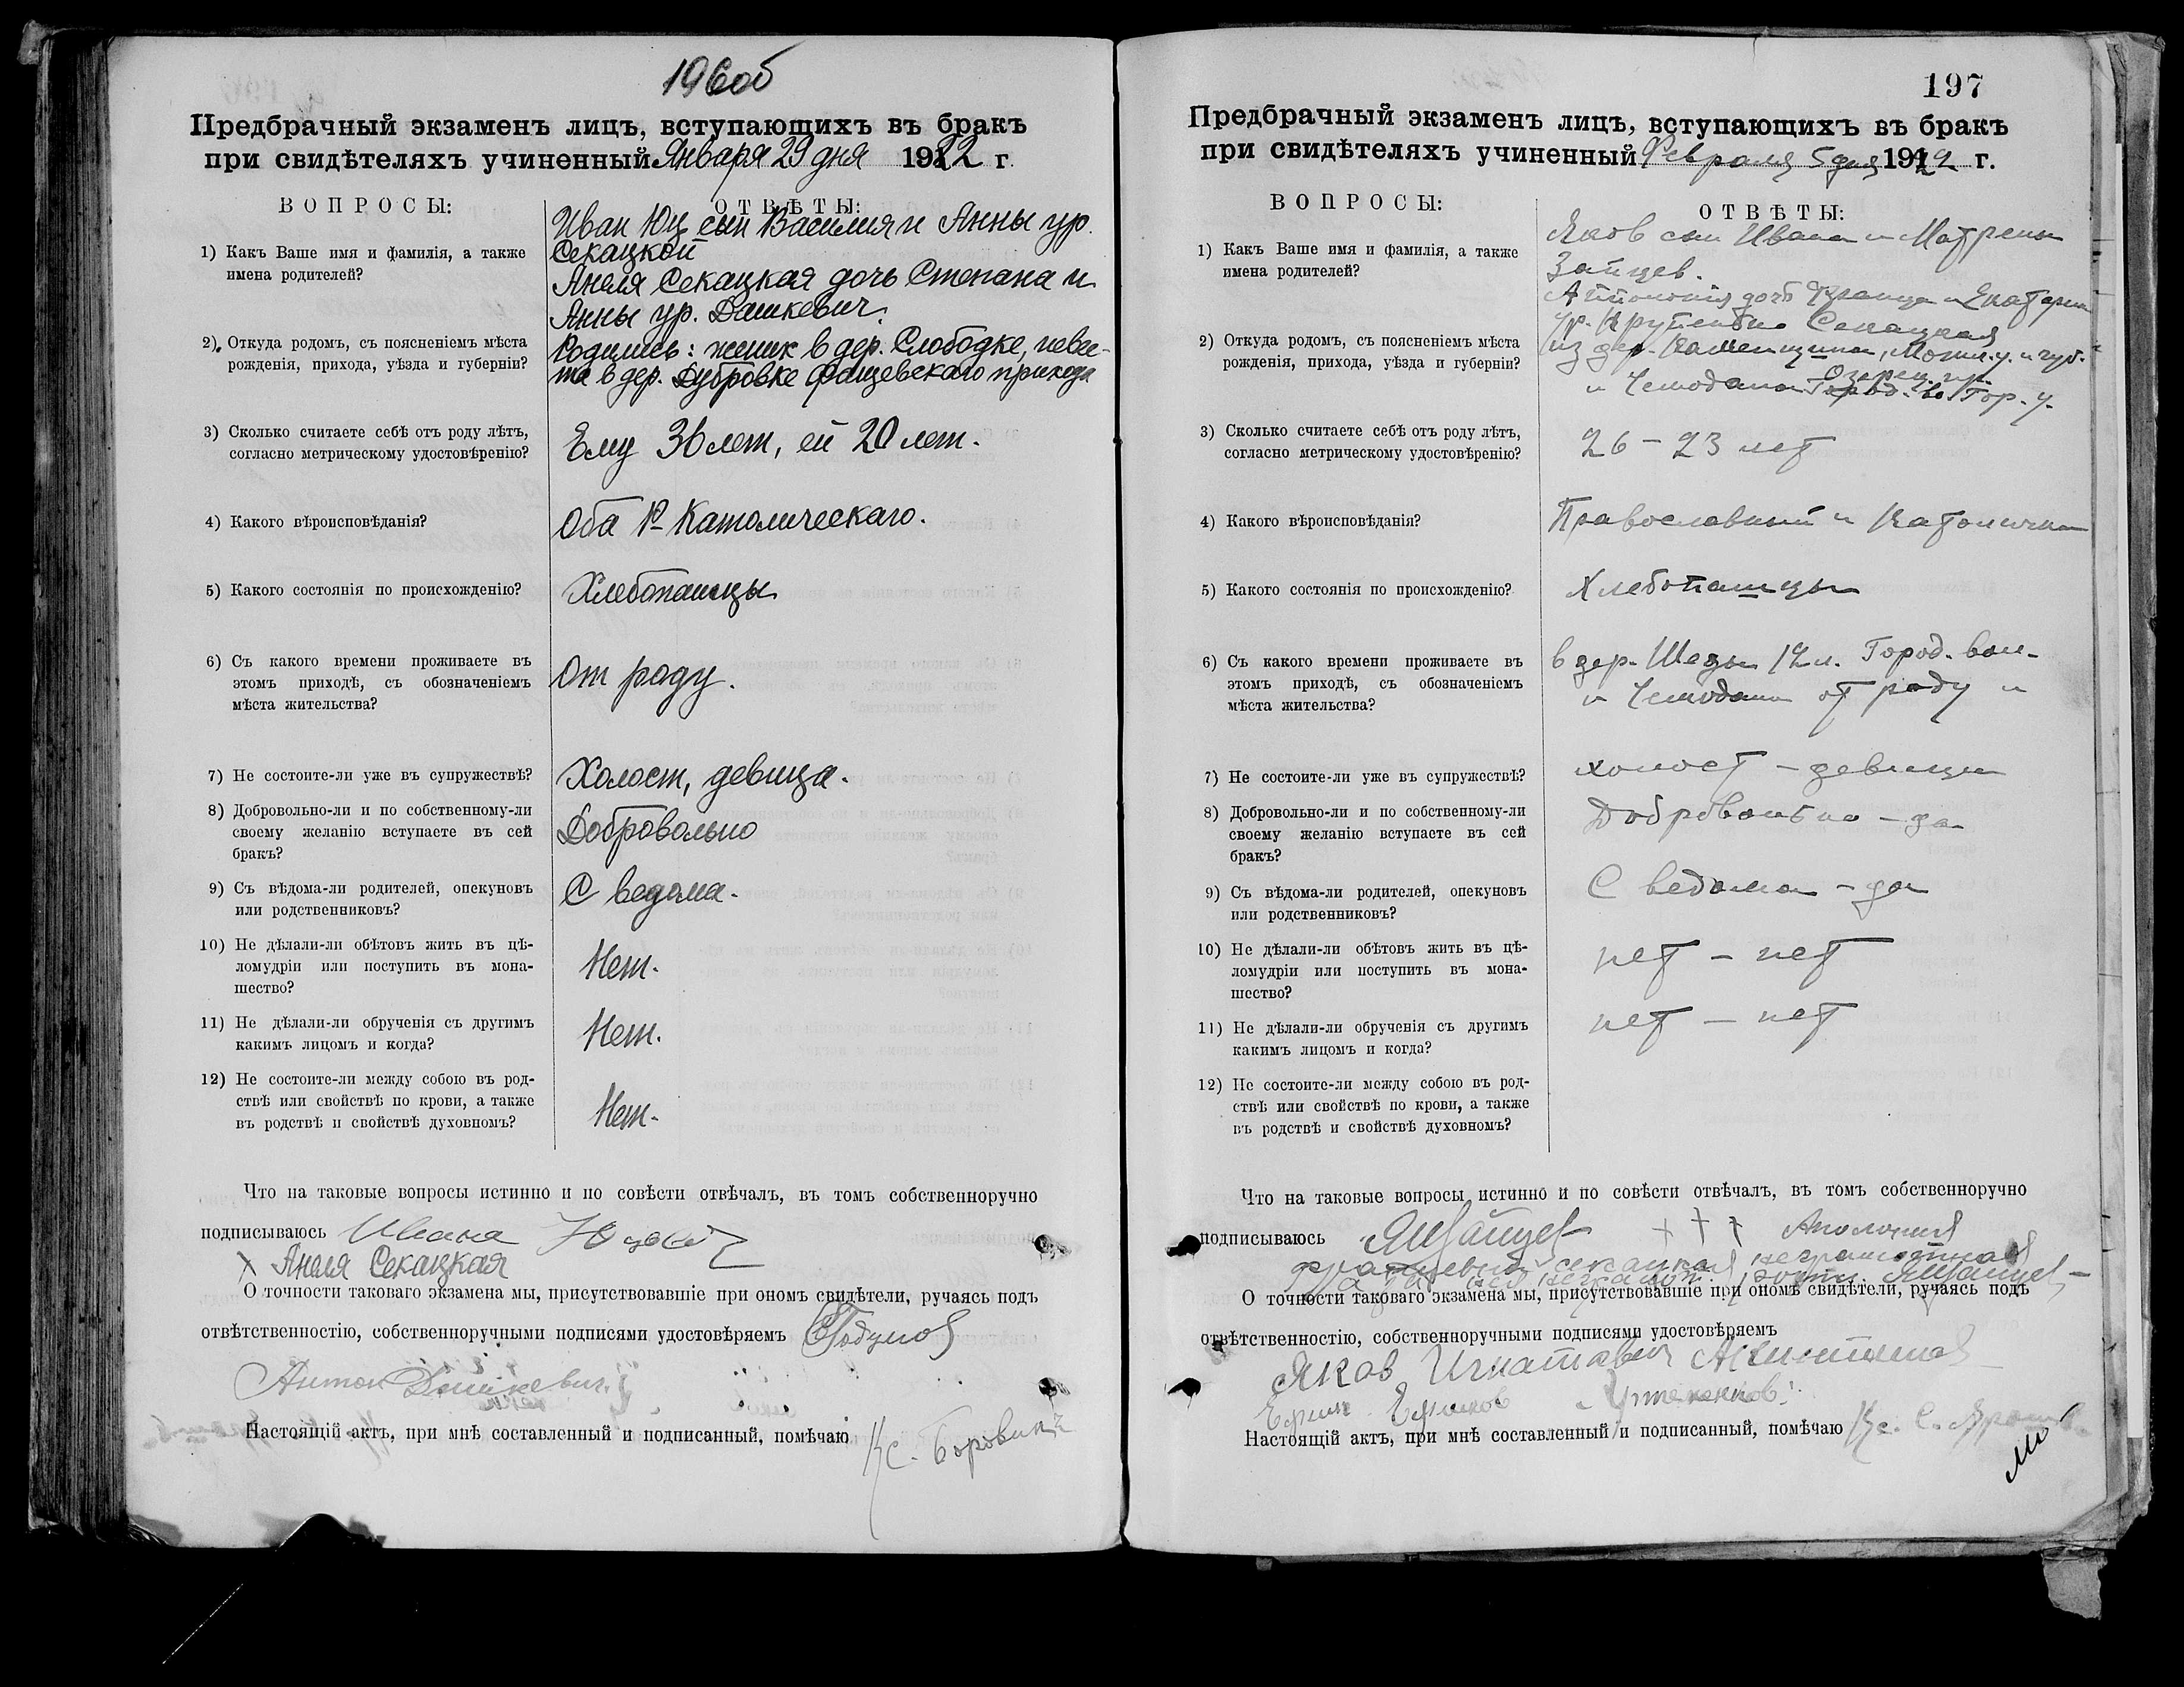 196об
Предбрачный экзаменъ лицъ, вступающихъ въ бракъ
при свидѣтеляхъ учиненный Января 29 дня 1922 г.
ВОПРОСЫ:
ОТВѢТЫ:
1) Какъ Ваше имя и фамилія, а также
имена родителей?
Иван Юц сын Василия и Анны ур.
Секацкой
Анеля Секацкая дочь Степана и
Анны ур. Дашкевич.
2) Откуда родомъ, съ поясненіемъ мѣста
рожденія, прихода, уѣзда и губерніи?
Родились: жених в дер. Слободке, невес-
та в дер. Дубровке Фащевскаго прихода
3) Сколько считаете себѣ отъ роду лѣтъ,
согласно метрическому удостовѣренію?
Ему 36 лет, ей 20 лет.
4) Какого вѣроисповѣданія?
Оба Р- Католическаго.
5) Какого состоянія по происхожденію?
Хлебопашцы
6) Съ какого времени проживаете въ
этомъ приходѣ, съ обозначеніемъ
мѣста жительства?
От роду.
7) Не состоите-ли уже въ супружествѣ?
Холост, девица.
8) Добровольно-ли и по собственному-ли
своему желанію вступаете въ сей
бракъ?
Добровольно
9) Съ вѣдома-ли родителей, опекуновъ
или родственниковъ?
С ведома.
10) Не дѣлали-ли обѣтовъ жить въ цѣ-
ломудріи или поступить въ мона-
шество?
Нет.
11) Не дѣлали-ли обрученія съ другимъ
какимъ лицомъ и когда?
Нет.
12) Не состоите-ли между собою въ род-
ствѣ или свойствѣ по крови, а также
въ родствѣ и свойствѣ духовномъ?
Нет.
Что на таковые вопросы истинно и по совѣсти отвѣчалъ, въ томъ собственноручно
подписываюсь Ивана
Х Анеля Секацкая
О точности таковаго экзамена мы, присутствовавшіе при ономъ свидѣтели, ручаясь подъ
отвѣтственностію, собственноручными подписями удостовѣряемъ
Антон Дашкевич
Настоящій актъ, при мнѣ составленный и подписанный, помѣчаю Кс. Боровик
197
Предбрачный экзаменъ лицъ, вступающихъ въ бракъ
при свидѣтеляхъ учиненный Февраля 5 дня 1922 г.
ВОПРОСЫ:
ОТВѢТЫ:
1) Какъ Ваше имя и фамилія, а также
имена родителей?
Яков сын Ивана и Матрены
Зайцев.
дочь Франца и Екатерин
ур. Секацкая
2) Откуда родомъ, съ поясненіемъ мѣста
рожденія, прихода, уѣзда и губерніи?
из дер. Каменщина, Могил. у. и губ.
Озерец. пр.
и Чемодана Город. во. Гор. у.
3) Сколько считаете себѣ отъ роду лѣтъ,
согласно метрическому удостовѣренію?
26 – 23 лет
4) Какого вѣроисповѣданія?
Православный и Католичка
5) Какого состоянія по происхожденію?
Хлебопашцы
6) Съ какого времени проживаете въ
этомъ приходѣ, съ обозначеніемъ
мѣста жительства?
в дер. Город. вол.
и Чемодана от роду
7) Не состоите-ли уже въ супружествѣ?
холост – девица
8) Добровольно-ли и по собственному-ли
своему желанію вступаете въ сей
бракъ?
Добровольно – да
9) Съ вѣдома-ли родителей, опекуновъ
или родственниковъ?
С ведома – да
10) Не дѣлали-ли обѣтовъ жить въ цѣ-
ломудріи или поступить въ мона-
шество?
нет – нет
11) Не дѣлали-ли обрученія съ другимъ
какимъ лицомъ и когда?
нет – нет
12) Не состоите-ли между собою въ род-
ствѣ или свойствѣ по крови, а также
въ родствѣ и свойствѣ духовномъ?
Что на таковые вопросы истинно и по совѣсти отвѣчалъ, въ томъ собственноручно
подписываюсь ЯИЗайцев + + + Аполония
секацкая неграмотная
ЯИЗайцев
О точности таковаго экзамена мы, присутствовавшіе при ономъ свидѣтели, ручаясь подъ
отвѣтственностію, собственноручными подписями удостовѣряемъ
Яков Игнатович
Ефим
Настоящій актъ, при мнѣ составленный и подписанный, помѣчаю Кс. С.